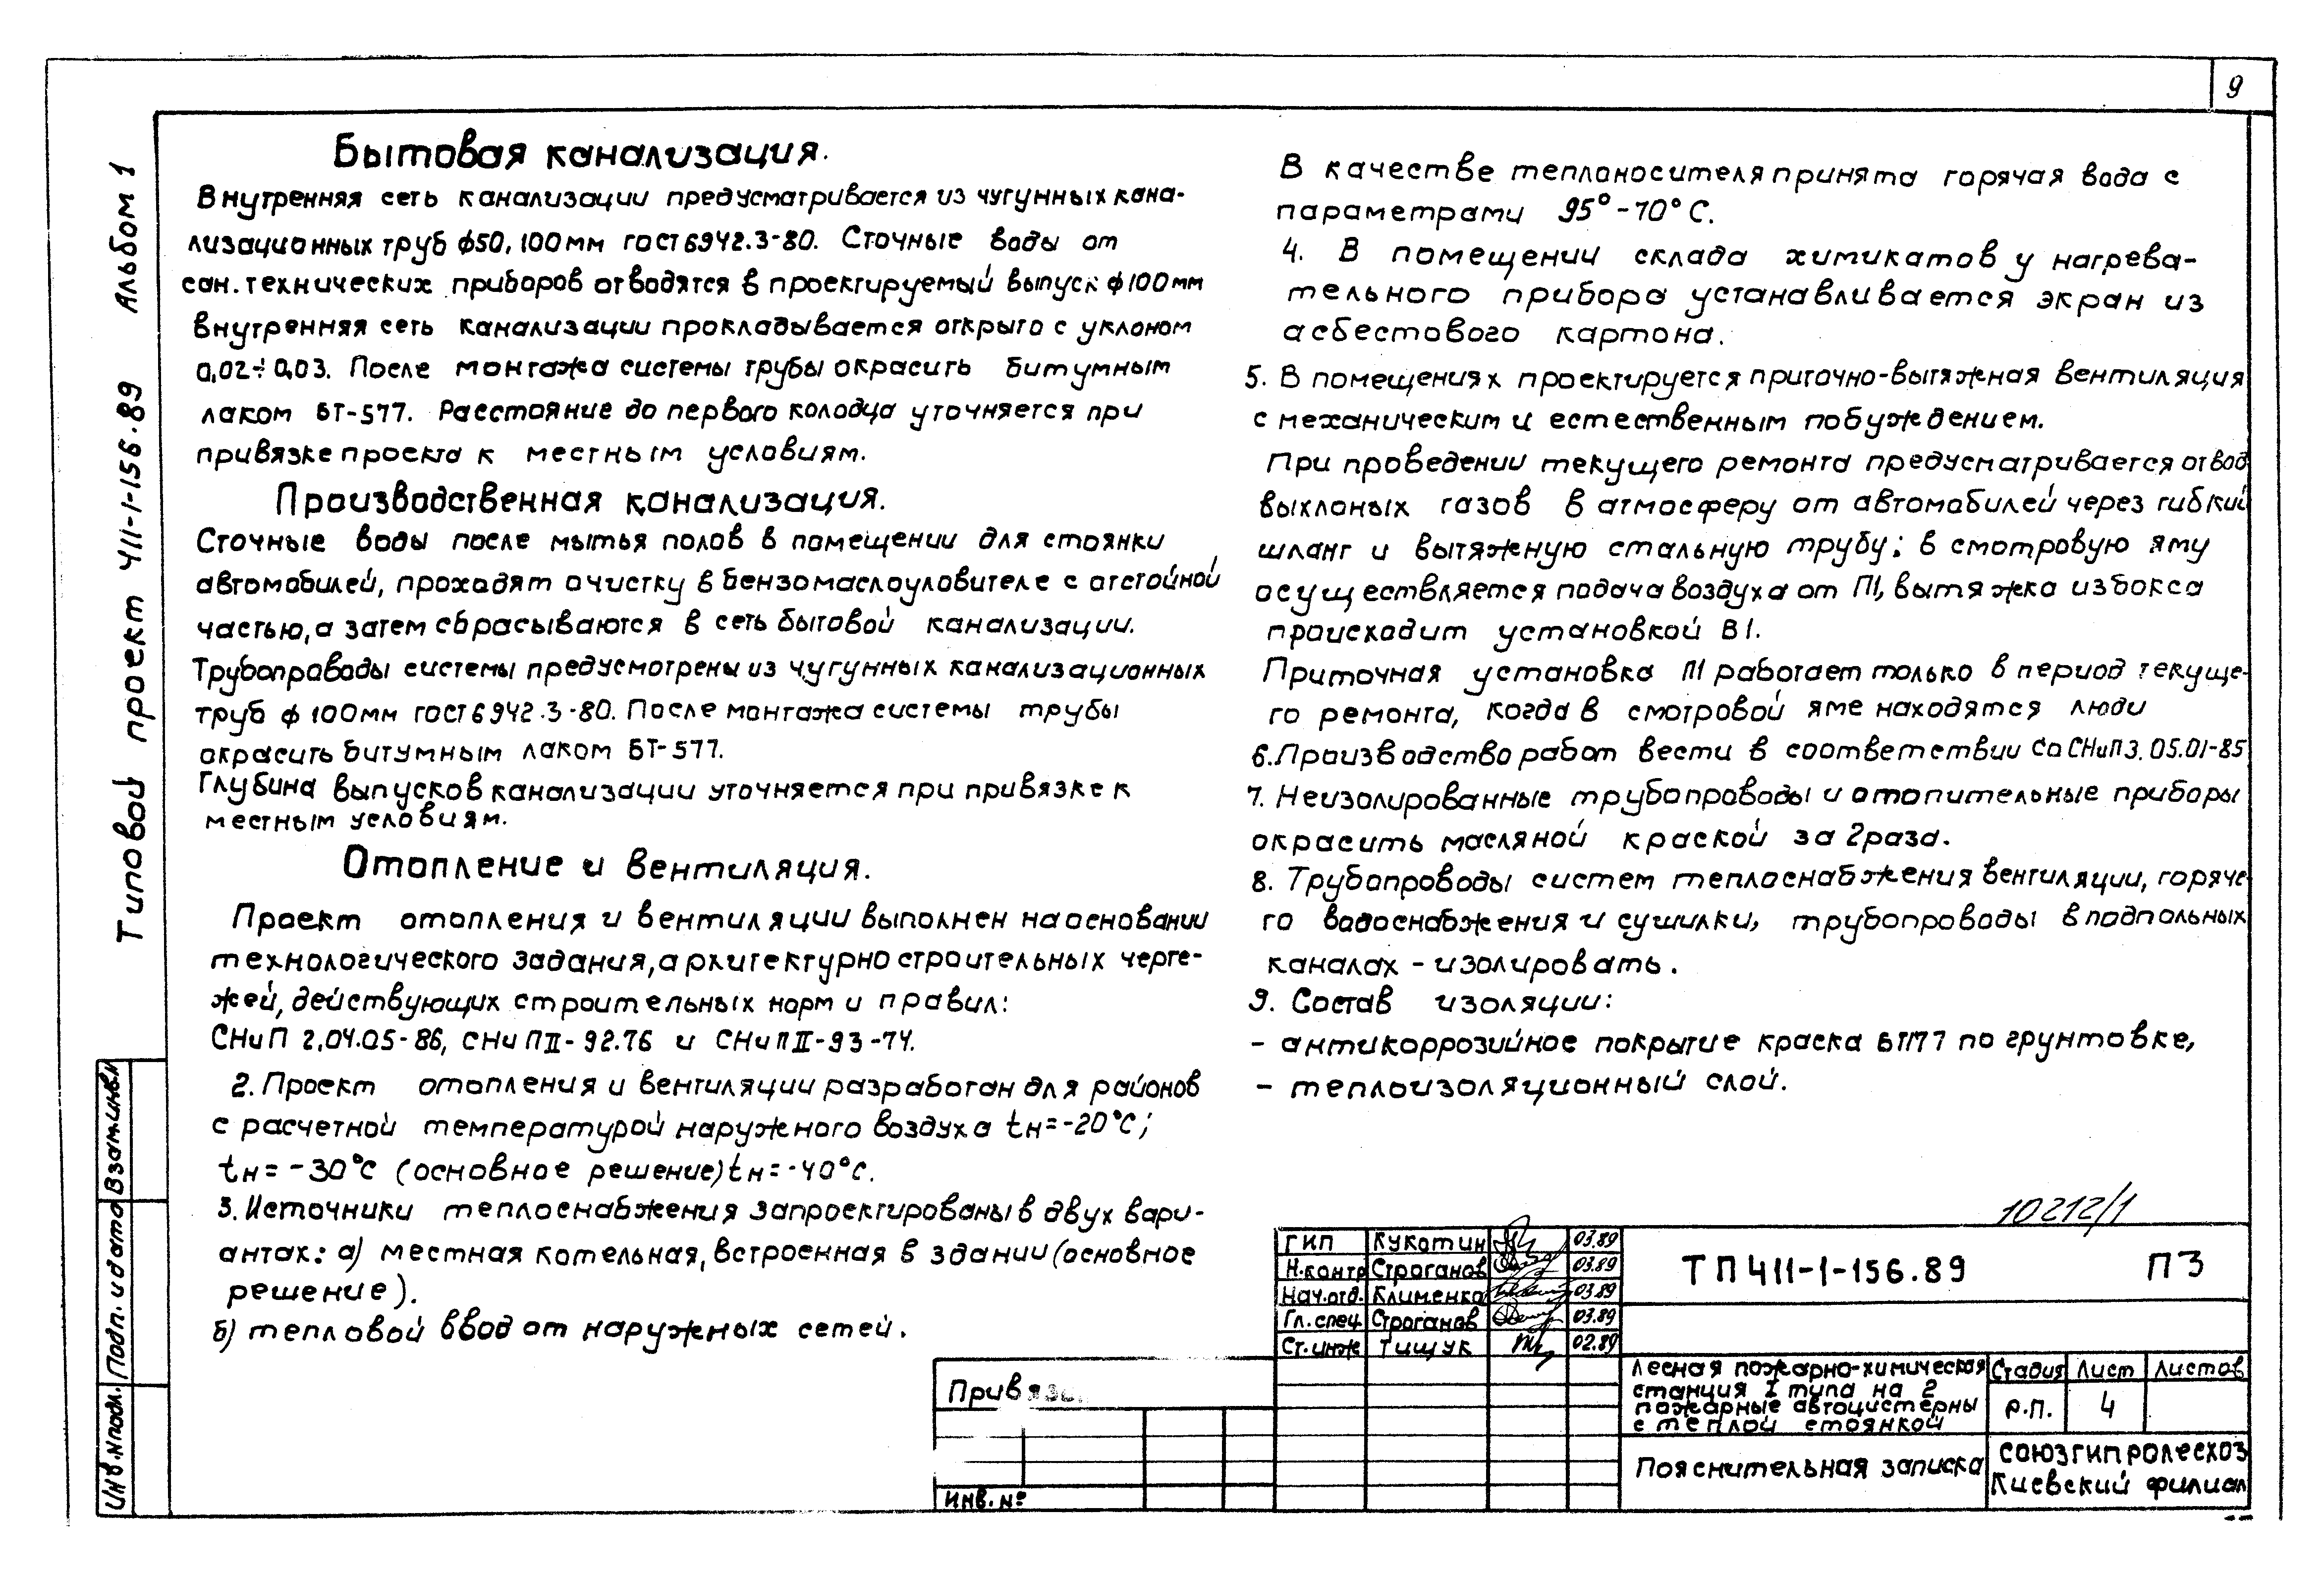 9
Альбом 1
Типовой проект 411-1-156.89
Бытовая канализация.
Внутренняя сеть канализации предусматривается из чугунных кана-
лизационных труб ф50, 100мм гост 6942.3-80. Сточные воды от
сан. технических приборов отводятся в проектируемый выпуск ф100мм
внутренняя сеть канализации прокладывается открыто с уклоном
0,02÷0,03. После монтажа системы трубы окрасить битумным
лаком БТ-577. Расстояние до первого колодца уточняется при
привязке проекта к местным условиям.
Производственная канализация.
Сточные воды после мытья полов в помещении для стоянки
автомобилей, проходят очистку в бензомаслоуловителе с отстойной
частью, а затем сбрасываются в сеть бытовой канализации.
Трубопроводы системы предусмотрены из чугунных канализационных
труб ф 100мм гост 6942.3-80. После монтажа системы трубы
окрасить битумным лаком БТ-577.
Глубина выпусков канализации уточняется при привязке к
местным условиям.
Отопление и вентиляция.
Проект отопления и вентиляции выполнен на основании
технологического задания, архитектурно строительных черте-
жей, действующих строительных норм и правил:
СНиП 2.04.05-86, СНиП II-92.76 и СНиП II-93-74.
2. Проект отопления и вентиляции разработан для районов
с расчетной температурой наружного воздуха tн=-20°С;
tн=-30°С (основное решение) tн=-40°С.
3. Источники теплоснабжения запроектированы в двух вари-
антах: а) местная котельная, встроенная в здании (основное
решение).
б) тепловой ввод от наружных сетей.
В качестве теплоносителя принята горячая вода с
параметрами 95°-70°С.
4. В помещении склада химикатов у нагрева-
тельного прибора устанавливается экран из
асбестового картона.
5. В помещениях проектируется приточно-вытяжная вентиляция
с механическим и естественным побуждением.
При проведении текущего ремонта предусматривается отвод
выхлоных газов в атмосферу от автомобилей через гибкий
шланг и вытяжную стальную трубу; в смотровую яму
осуществляется подача воздуха от П1, вытяжка из бокса
происходит установкой В1.
Приточная установка П1 работает только в период текуще-
го ремонта, когда в смотровой яме находятся люди
6. Производство работ вести в соответствии со СНиП 3.05.01-85
7. Неизолированные трубопроводы и отопительные приборы
окрасить масляной краской за 2 раза.
8. Трубопроводы систем теплоснабжения вентиляции, горяче-
го водоснабжения и сушилки, трубопроводы в подпольных
каналах - изолировать.
9. Состав изоляции:
- антикоррозийное покрытие краска БТ177 по грунтовке,
- теплоизоляционный слой.
10212/1
ГИП Кукотин 03.89
Н.контр Строганов 03.89
Нач.отд. Клименко 03.89
Гл. спец. Строганов 03.89
Ст. инж Тищук 02.89
ТП 411-1-156.89 ПЗ
Лесная пожарно-химическая
станция I типа на 2
пожарные автоцистерны
с теплой стоянкой
Стадия Лист Листов
Р.П. 4
Пояснительная записка
СОЮЗГИПРОЛЕСХОЗ
Киевский филиал
Привяза
Инв. №
Взам.инв.№
Подп. и дата
Инв.№подл.